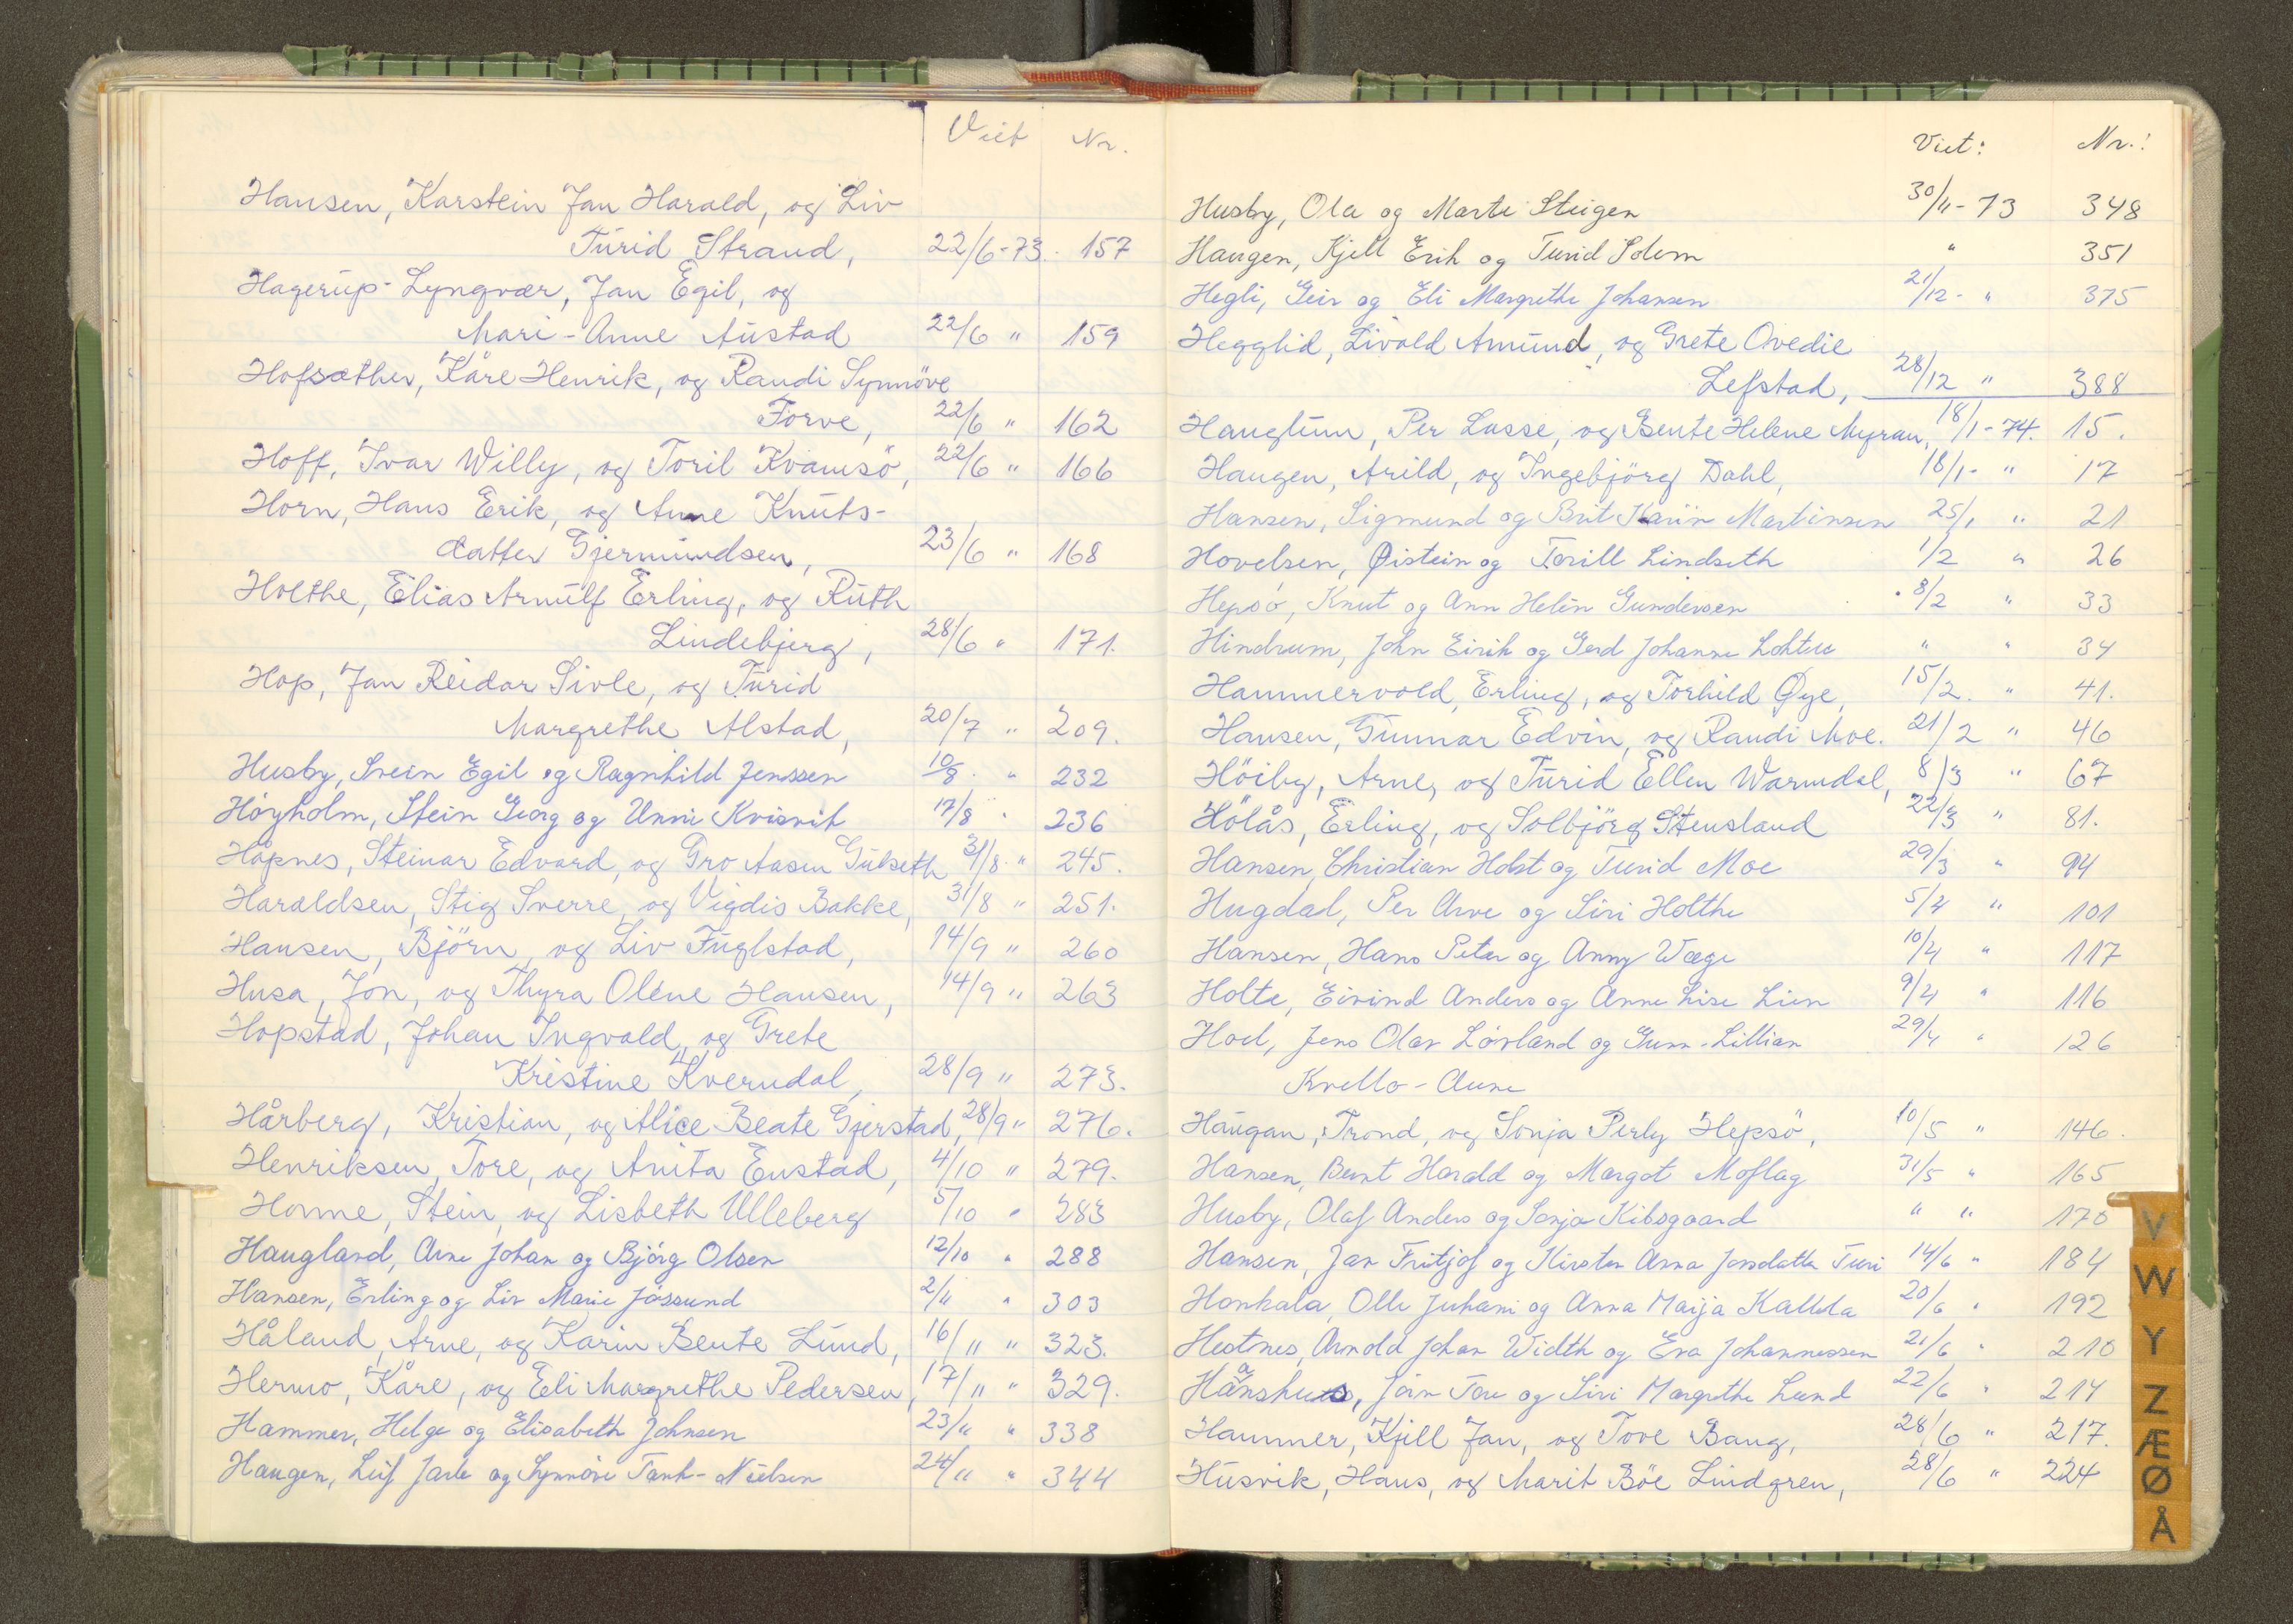 Viet Nr.
Hansen, Karstein Jan Harald, og Liv
Turid Strand, 22/6-73. 157
Hagerup-Lyngvær, Jan Egil, og
Mari-Anne Austad 22/6 " 159
Hofsæther, Kåre Henrik, og Randi Synnöve
Forve, 22/6 " 162
Hoff, Ivar Willy, og Toril Kvamsö, 22/6 " 166
Horn, Hans Erik, og Anne Knuts-
datter Gjermundsen, 23/6 " 168
Holthe, Elias Arnulf Erling, og Ruth
Lindebjerg, 28/6 " 171.
Hop, Jan Reidar Sivle, og Turid
Margrethe Alstad, 20/7 " 209.
Husby, Svein Egil og Ragnhild Jenssen 10/8. " 232
Høyholm, Stein Georg og Unni Kvisvik 17/8 " 236
Håpnes, Steinar Edvard, og Gro Aasen Gulseth 31/8. " 245.
Haraldsen, Stig Sverre, og Vigdis Bakke, 31/8 " 251.
Hansen, Björn, og Liv Fuglstad, 14/9 " 260
Husa, Jon, og Thyra Oléne Hansen, 14/9 " 263
Hopstad, Johan Ingvald, og Grete
Kristine Kverndal, 28/9 " 273.
Hårberg, Kristian, og Alice Beate Gjerstad, 28/9 " 276.
Henriksen, Tore, og Anita Enstad, 4/10 " 279.
Homme, Stein, og Lisbeth Ulleberg 5/10 " 283
Haugland, Arne Johan og Bjørg Olsen 12/10 " 288
Hansen, Erling og Liv Marie Jøssund 2/11 " 303
Håland, Arne, og Karin Bente Lund, 16/11 " 323.
Hermo, Kåre, og Eli Margrethe Pedersen, 17/11 " 329.
Hammer, Helge og Elisabeth Johnsen 23/11 " 338
Haugen, Leif Jarle og Synnøve Tank-Nielsen 24/11 " 344
Viet: Nr.:
Husby, Ola og Marte Steigen 30/11-73 348
Haugen, Kjell Erik og Turid Solem " 351
Hegli, Geir og Eli Margrethe Johansen 21/12- " 375
Hegglid, Livold Amund, og Grete Ovedie
Lefstad, 28/12 " 388
Hauglum, Per Lasse, og Bente Helene Myran, 18/1-74. 15.
Haugen, Arild, og Ingebjörg Dahl, 18/1- " 17
Hansen, Sigmund og Brit Karin Martinsen 25/1 " 21
Hovelsen, Øistein og Torill Lindseth 1/2 " 26
Hepsø, Knut og Ann Helén Gundersen 8/2 " 33
Hindrum, John Eirik og Gerd Johanne " " 34
Hammervold, Erling, og Torhild Øye, 15/2. " 41.
Hansen, Gunnar Edvin, og Randi Moe. 21/2 " 46
Höiby, Arne, og Turid Ellen Warmdal, 8/3 " 67
Hölås, Erling, og Solbjörg Stensland 22/3 " 81.
Hansen, Christian Holst og Turid Moe 29/3 " 94
Hugdal, Per Arve og Siri Holthe 5/4 " 101
Hansen, Hans Peter og Anny Wæge 10/4 " 117
Holte, Eivind Anders og Anne Lise Lien 9/4 " 116
Hoel, Jens Olav Løvland og Gunn-Lillian 29/4 " 126
Kvello-Aune
Haugan, Trond, og Sonja Perly Hepsö, 10/5 " 146.
Hansen, Bernt Harald og Margot Moflag 31/5 " 165
Husby, Olaf Anders og Sonja Kibsgaard " " 170
Hansen, Jan Fritjof og Kirsten Anna Jonsdatter Turi 14/6 " 184
Honkala, Olli Juhani og Anna Maija Kallela 20/6 " 192
Hestnes, Arnold Johan Width og Eva Johannessen 21/6 " 210
Hånshus, Jörn Tore og Siri Margrethe Lund 22/6 " 214
Hammer, Kjell Jan, og Tove Bang, 28/6 " 217.
Husvik, Hans, og Marit Böe Lindgren, 28/6 " 224
V
W
Y
Z
Æ
Ø
Å